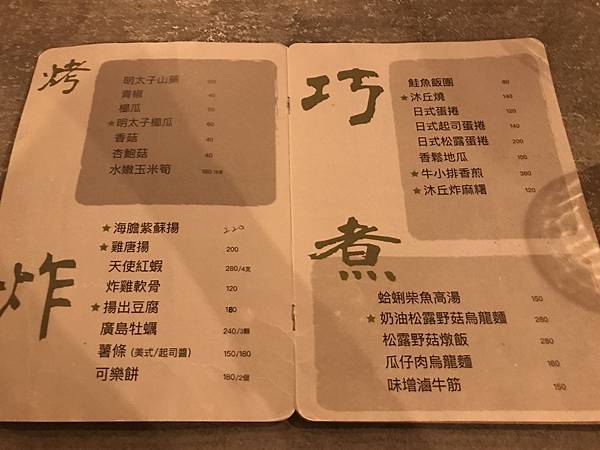 烤
明太子山藥
青椒 40
椰瓜 50
★明太子椰瓜 60
香菇 40
杏鮑菇 40
水嫩玉米筍 160
炸
★海膽紫蘇揚 220
★雞唐揚 200
天使紅蝦 280/4支
炸雞軟骨 120
★揚出豆腐 180
廣島牡蠣 240/3顆
薯條 (美式/起司醬) 150/180
可樂餅 180/2個
巧
鮭魚飯團 80
★沐丘燒 140
日式蛋捲 120
日式起司蛋捲 140
日式松露蛋捲 200
香鬆地瓜 100
★牛小排香煎 360
★沐丘炸麻糬 120
煮
蛤蜊柴魚高湯 150
★奶油松露野菇烏龍麵 280
松露野菇燉飯 280
瓜仔肉烏龍麵 160
味增滷牛筋 150